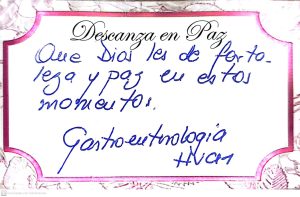 Descanza en Paz
Que Dios les de forta-
leza y paz en estos
momentos.
Gastroenterologia
HVCM